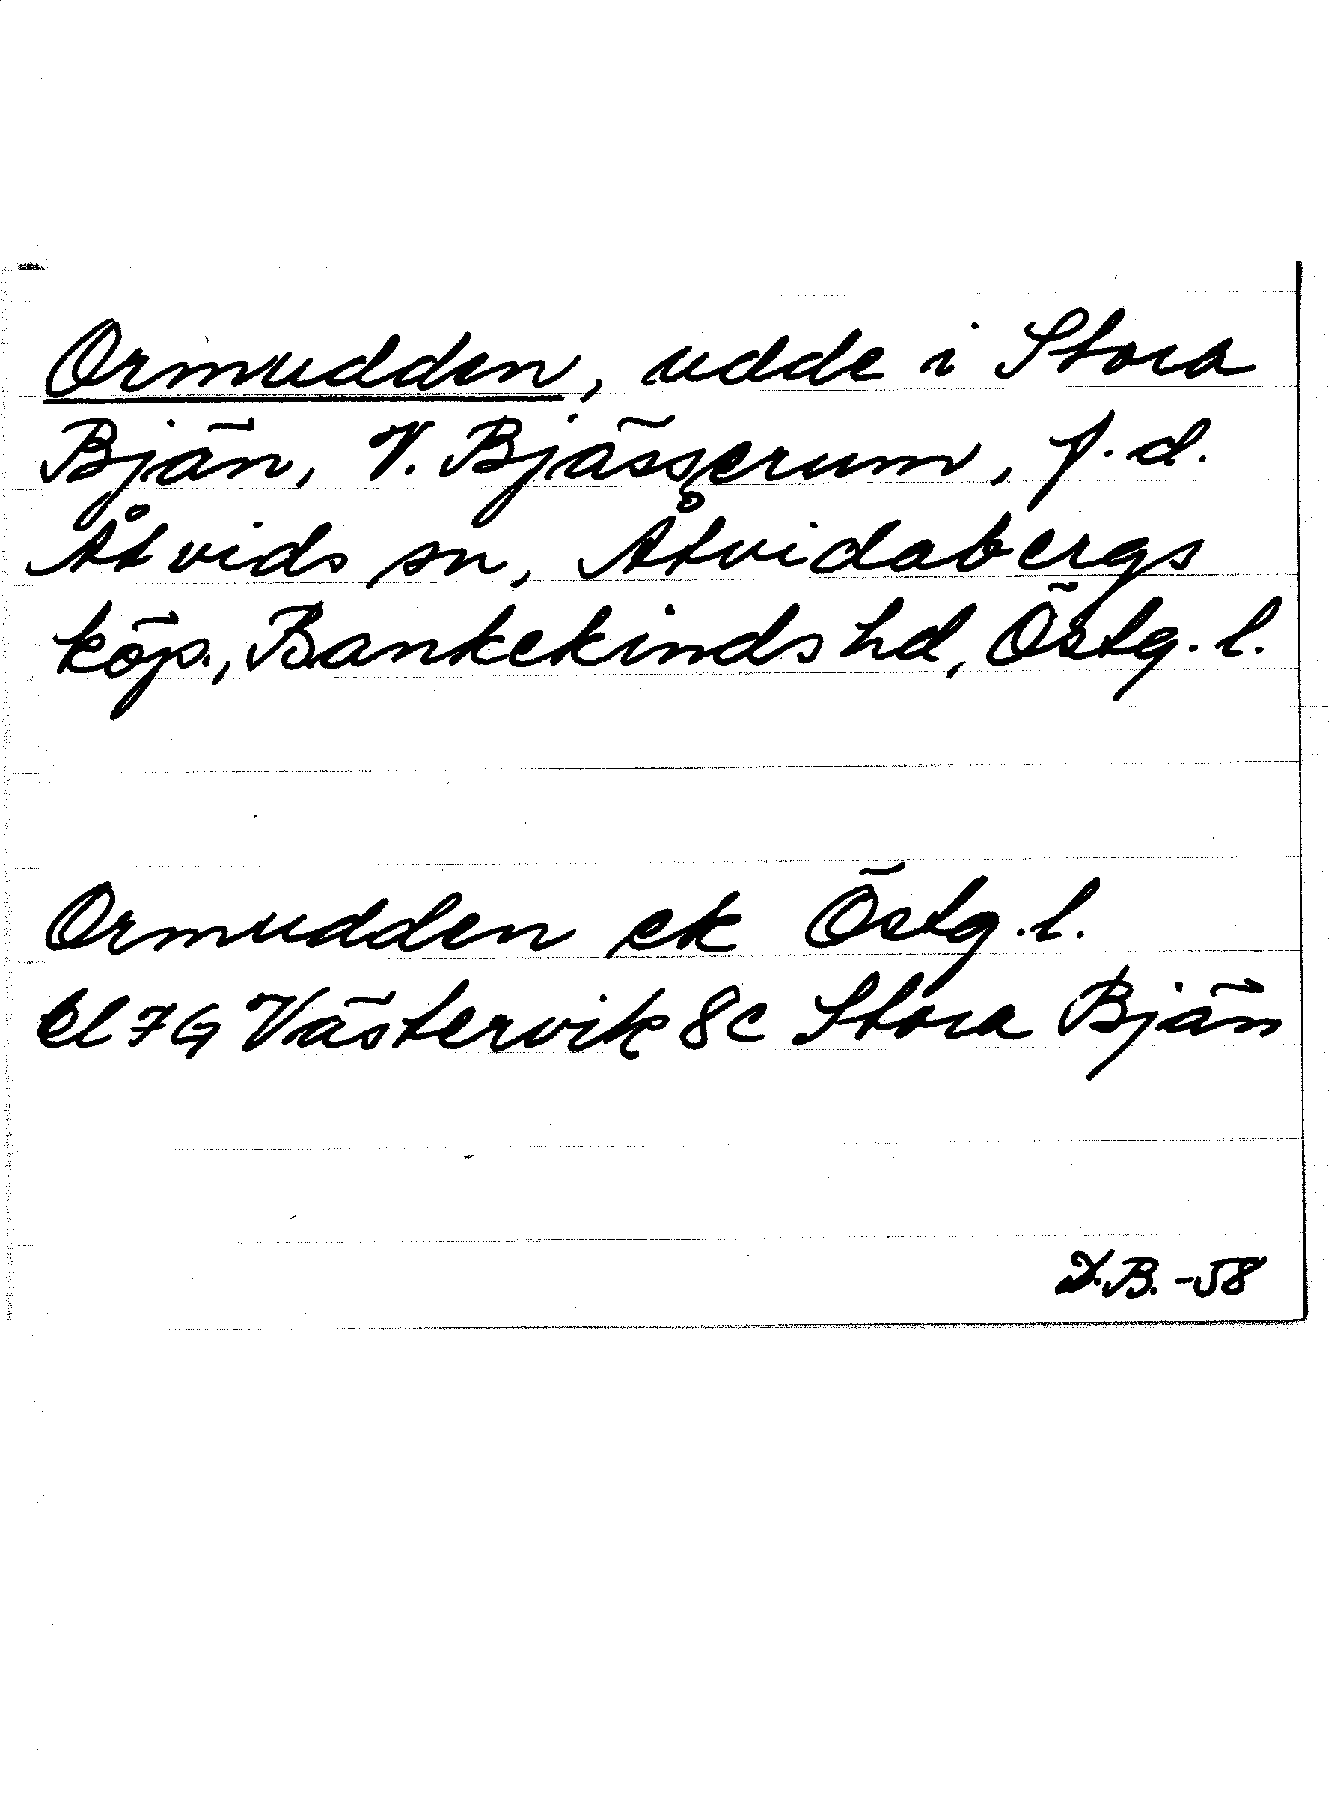 Ormudden, udde i Stora
Bjän, V. Bjässerum, f.d.
Åtvids sn, Åtvidabergs
köp., Bankekinds hd, Östg. l.
Ormudden ek Östg. l.
bl 7G Västervik 8c Stora Bjän
D.B. -58